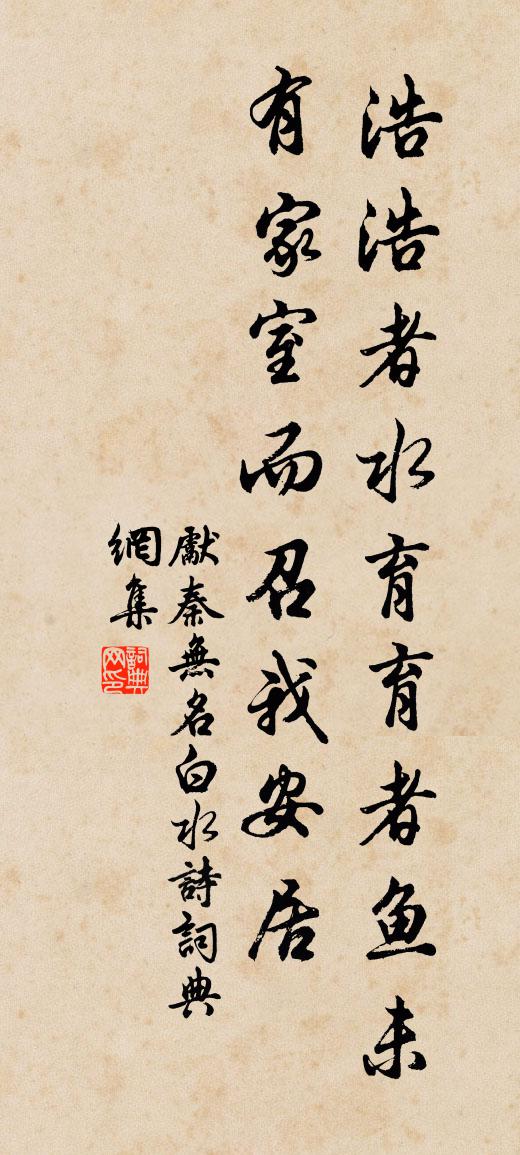 浩浩者水育育者鱼未
有家室而召我安居
獻秦無名白水詩詞典
網集
詞典
网印